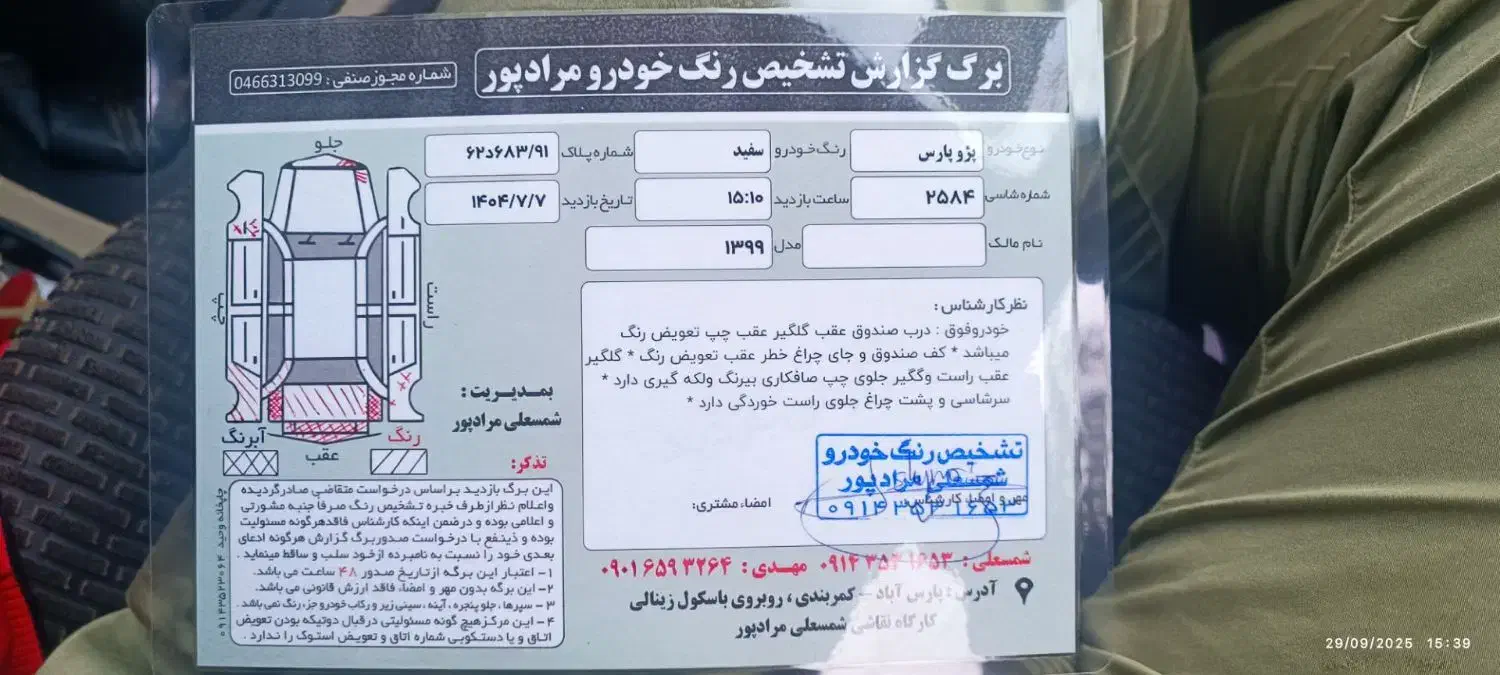 برگ گزارش تشخیص رنگ خودرو مرادپور
شماره مجوز صنفی : 0466313099
نوع خودرو پژو پارس رنگ خودرو سفید شماره پلاک ۶۲د۶۸۳/۹۱
شماره شاسی ۲۵۸۴ ساعت بازدید ۱۵:۱۰ تاریخ بازدید ۱۴۰۴/۷/۷
نام مالک مدل ۱۳۹۹
نظر کارشناس :
خودروفوق : درب صندوق عقب گلگیر عقب چپ تعویض رنگ
میباشد * کف صندوق و جای چراغ خطر عقب تعویض رنگ * گلگیر
عقب راست وگگیر جلوی چپ صافکاری بیرنگ ولکه گیری دارد *
سرشاسی و پشت چراغ جلوی راست خوردگی دارد *
تشخیص رنگ خودرو
شمسعلی مرادپور
مهر و امضاء کارشناس:
امضاء مشتری:
جلو
راست
چپ
عقب
رنگ
آبرنگ
بمدیریت :
شمسعلی مرادپور
تذکر:
این برگ بازدید براساس درخواست متقاضی صادرگردیده
واعلام نظر ازطرف خبره تشخیص رنگ صرفا جنبه مشورتی
و اعلامی بوده و درضمن اینکه کارشناس فاقدهرگونه مسئولیت
بوده و ذینفع با درخواست صدوربرگ گزارش هرگونه ادعای
بعدی خود را نسبت به نامبرده ازخود سلب و ساقط مینماید .
۱- اعتبار این برگه ازتاریخ صدور ۴۸ ساعت می باشد.
۲- این برگه بدون مهر و امضاء فاقد ارزش قانونی می باشد.
۳- سپرها ، جلو پنجره ، آینه ، سینی زیر و رکاب خودرو جزء رنگ نمی باشد.
۴- این مرکزهیچ گونه مسئولیتی درقبال دوتیکه بودن تعویض
اتاق و یا دستکوبی شماره اتاق و تعویض استوک را ندارد .
چاپخانه وحید ۰۹۱۴۳۵۲۳۰۶۴
شمسعلی : ۰۹۱۴ ۳۵۲ ۱۶۵۳ مهدی : ۰۹۰۱ ۶۵۹ ۳۲۶۴
آدرس : پارس آباد - کمربندی ، روبروی باسکول زینالی
کارگاه نقاشی شمسعلی مرادپور
29/09/2025 15:39